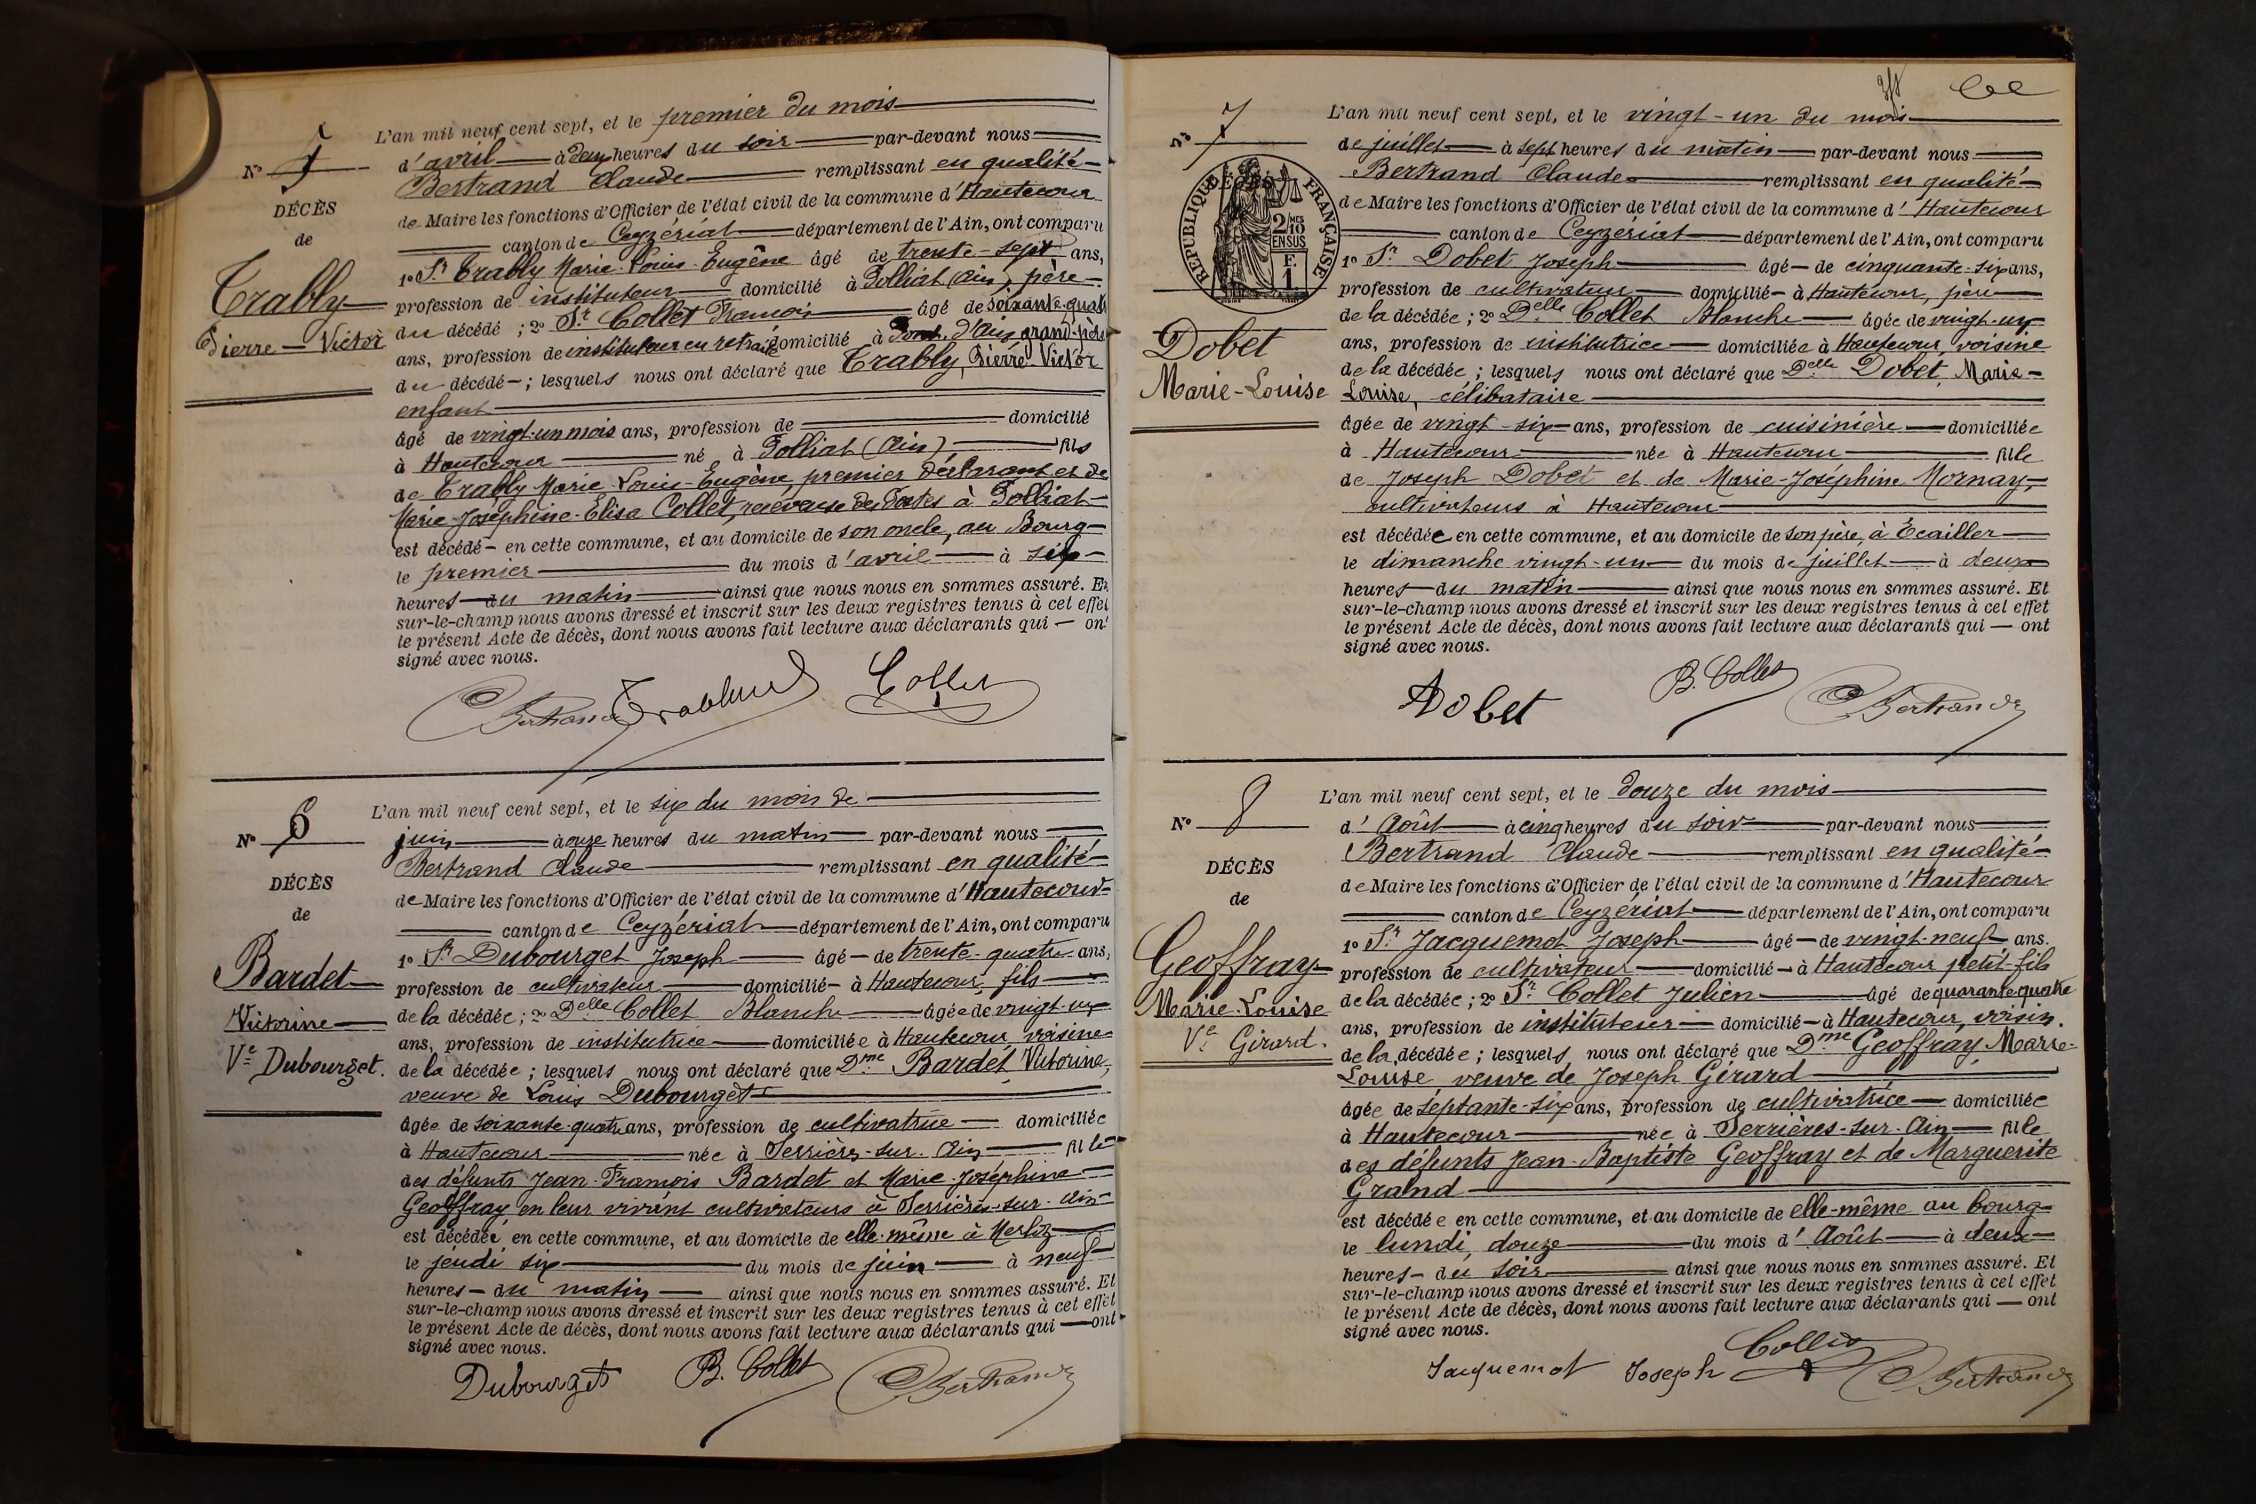 N° 5
DÉCÈS
de
Trably
Pierre-Victor
L'an mil neuf cent sept, et le premier du mois
d'avril à deux heures du soir par-devant nous
Bertrand Claude remplissant en qualité
de Maire les fonctions d'Officier de l'état civil de la commune d'Hautecour
canton de Ceyzériat département de l'Ain, ont comparu
1° Sr Trably Marie-Louis-Eugène âgé de trente-sept ans,
profession de instituteur domicilié à Polliat (Ain), père
du décédé ; 2° Sr Collet François âgé de soixante-quatre
ans, profession de instituteur en retraite domicilié à Pont-d'Ain grand-père
du décédé ; lesquels nous ont déclaré que Trably, Pierre-Victor
enfant
âgé de vingt-un mois ans, profession de domicilié
à Hautecour né à Polliat (Ain) fils
de Trably Marie-Louis-Eugène, premier déclarant et de
Marie-Joséphine-Elisa Collet, receveuse des Postes à Polliat
est décédé en cette commune, et au domicile de son oncle, au Bourg
le premier du mois d'avril à six
heures du matin ainsi que nous nous en sommes assuré. Et
sur-le-champ nous avons dressé et inscrit sur les deux registres tenus à cet effet
le présent Acte de décès, dont nous avons fait lecture aux déclarants qui ont
signé avec nous.
Bertrand Collet
N° 6
DÉCÈS
de
Bardet
Victorine
Ve Dubourget.
L'an mil neuf cent sept, et le six du mois de
juin à onze heures du matin par-devant nous
Bertrand Claude remplissant en qualité
de Maire les fonctions d'Officier de l'état civil de la commune d'Hautecour
canton de Ceyzériat département de l'Ain, ont comparu
1° Sr Dubourget Joseph âgé de trente-quatre ans,
profession de cultivateur domicilié à Hautecour, fils
de la décédée ; 2° Delle Collet Blanche âgée de vingt-un
ans, profession de institutrice domiciliée à Hautecour, voisine
de la décédée ; lesquels nous ont déclaré que Dme Bardet Victorine,
veuve de Louis Dubourget
âgée de soixante-quatre ans, profession de cultivatrice domiciliée
à Hautecour née à Serrières-sur-Ain fille
des défunts Jean-François Bardet et Marie-Joséphine
Geoffray en leur vivant cultivateurs à Serrières-sur-Ain
est décédée en cette commune, et au domicile de elle-même à Merloz
le jeudi six du mois de juin à neuf
heures du matin ainsi que nous nous en sommes assuré. Et
sur-le-champ nous avons dressé et inscrit sur les deux registres tenus à cet effet
le présent Acte de décès, dont nous avons fait lecture aux déclarants qui ont
signé avec nous.
Dubourget B. Collet Bertrand
N° 7
DÉCÈS
RÉPUBLIQUE FRANÇAISE
2/10 MES
EN SUS
F.
1
Dobet
Marie-Louise
L'an mil neuf cent sept, et le vingt-un du mois
de juillet à sept heures du matin par-devant nous
Bertrand Claude remplissant en qualité
de Maire les fonctions d'Officier de l'état civil de la commune d'Hautecour
canton de Ceyzériat département de l'Ain, ont comparu
1° Sr Dobet Joseph âgé de cinquante-six ans,
profession de cultivateur domicilié à Hautecour, père
de la décédée ; 2° Delle Collet Blanche âgée de vingt-un
ans, profession de institutrice domiciliée à Hautecour, voisine
de la décédée ; lesquels nous ont déclaré que Delle Dobet, Marie-
Louise, célibataire
âgée de vingt-six ans, profession de cuisinière domiciliée
à Hautecour née à Hautecour fille
de Joseph Dobet et de Marie-Joséphine Mornay,
cultivateurs à Hautecour
est décédée en cette commune, et au domicile de son père, à Écailler
le dimanche vingt-un du mois de juillet à deux
heures du matin ainsi que nous nous en sommes assuré. Et
sur-le-champ nous avons dressé et inscrit sur les deux registres tenus à cet effet
le présent Acte de décès, dont nous avons fait lecture aux déclarants qui ont
signé avec nous.
Dobet B. Collet Bertrand
N° 8
DÉCÈS
de
Geoffray
Marie-Louise
Ve Girard.
L'an mil neuf cent sept, et le douze du mois
d'Août à cinq heures du soir par-devant nous
Bertrand Claude remplissant en qualité
de Maire les fonctions d'Officier de l'état civil de la commune d'Hautecour
canton de Ceyzériat département de l'Ain, ont comparu
1° Sr Jacquemot Joseph âgé de vingt-neuf ans.
profession de cultivateur domicilié à Hautecour petit-fils
de la décédée ; 2° Sr Collet Julien âgé de quarante-quatre
ans, profession de instituteur domicilié à Hautecour, voisin.
de la décédée ; lesquels nous ont déclaré que Dme Geoffray Marie-
Louise veuve de Joseph Girard
âgée de septante-six ans, profession de cultivatrice domiciliée
à Hautecour née à Serrières-sur-Ain fille
des défunts Jean-Baptiste Geoffray et de Marguerite
Grand
est décédée en cette commune, et au domicile de elle-même au bourg
le lundi douze du mois d'Août à deux
heures du soir ainsi que nous nous en sommes assuré. Et
sur-le-champ nous avons dressé et inscrit sur les deux registres tenus à cet effet
le présent Acte de décès, dont nous avons fait lecture aux déclarants qui ont
signé avec nous.
Jacquemot Joseph Collet Bertrand